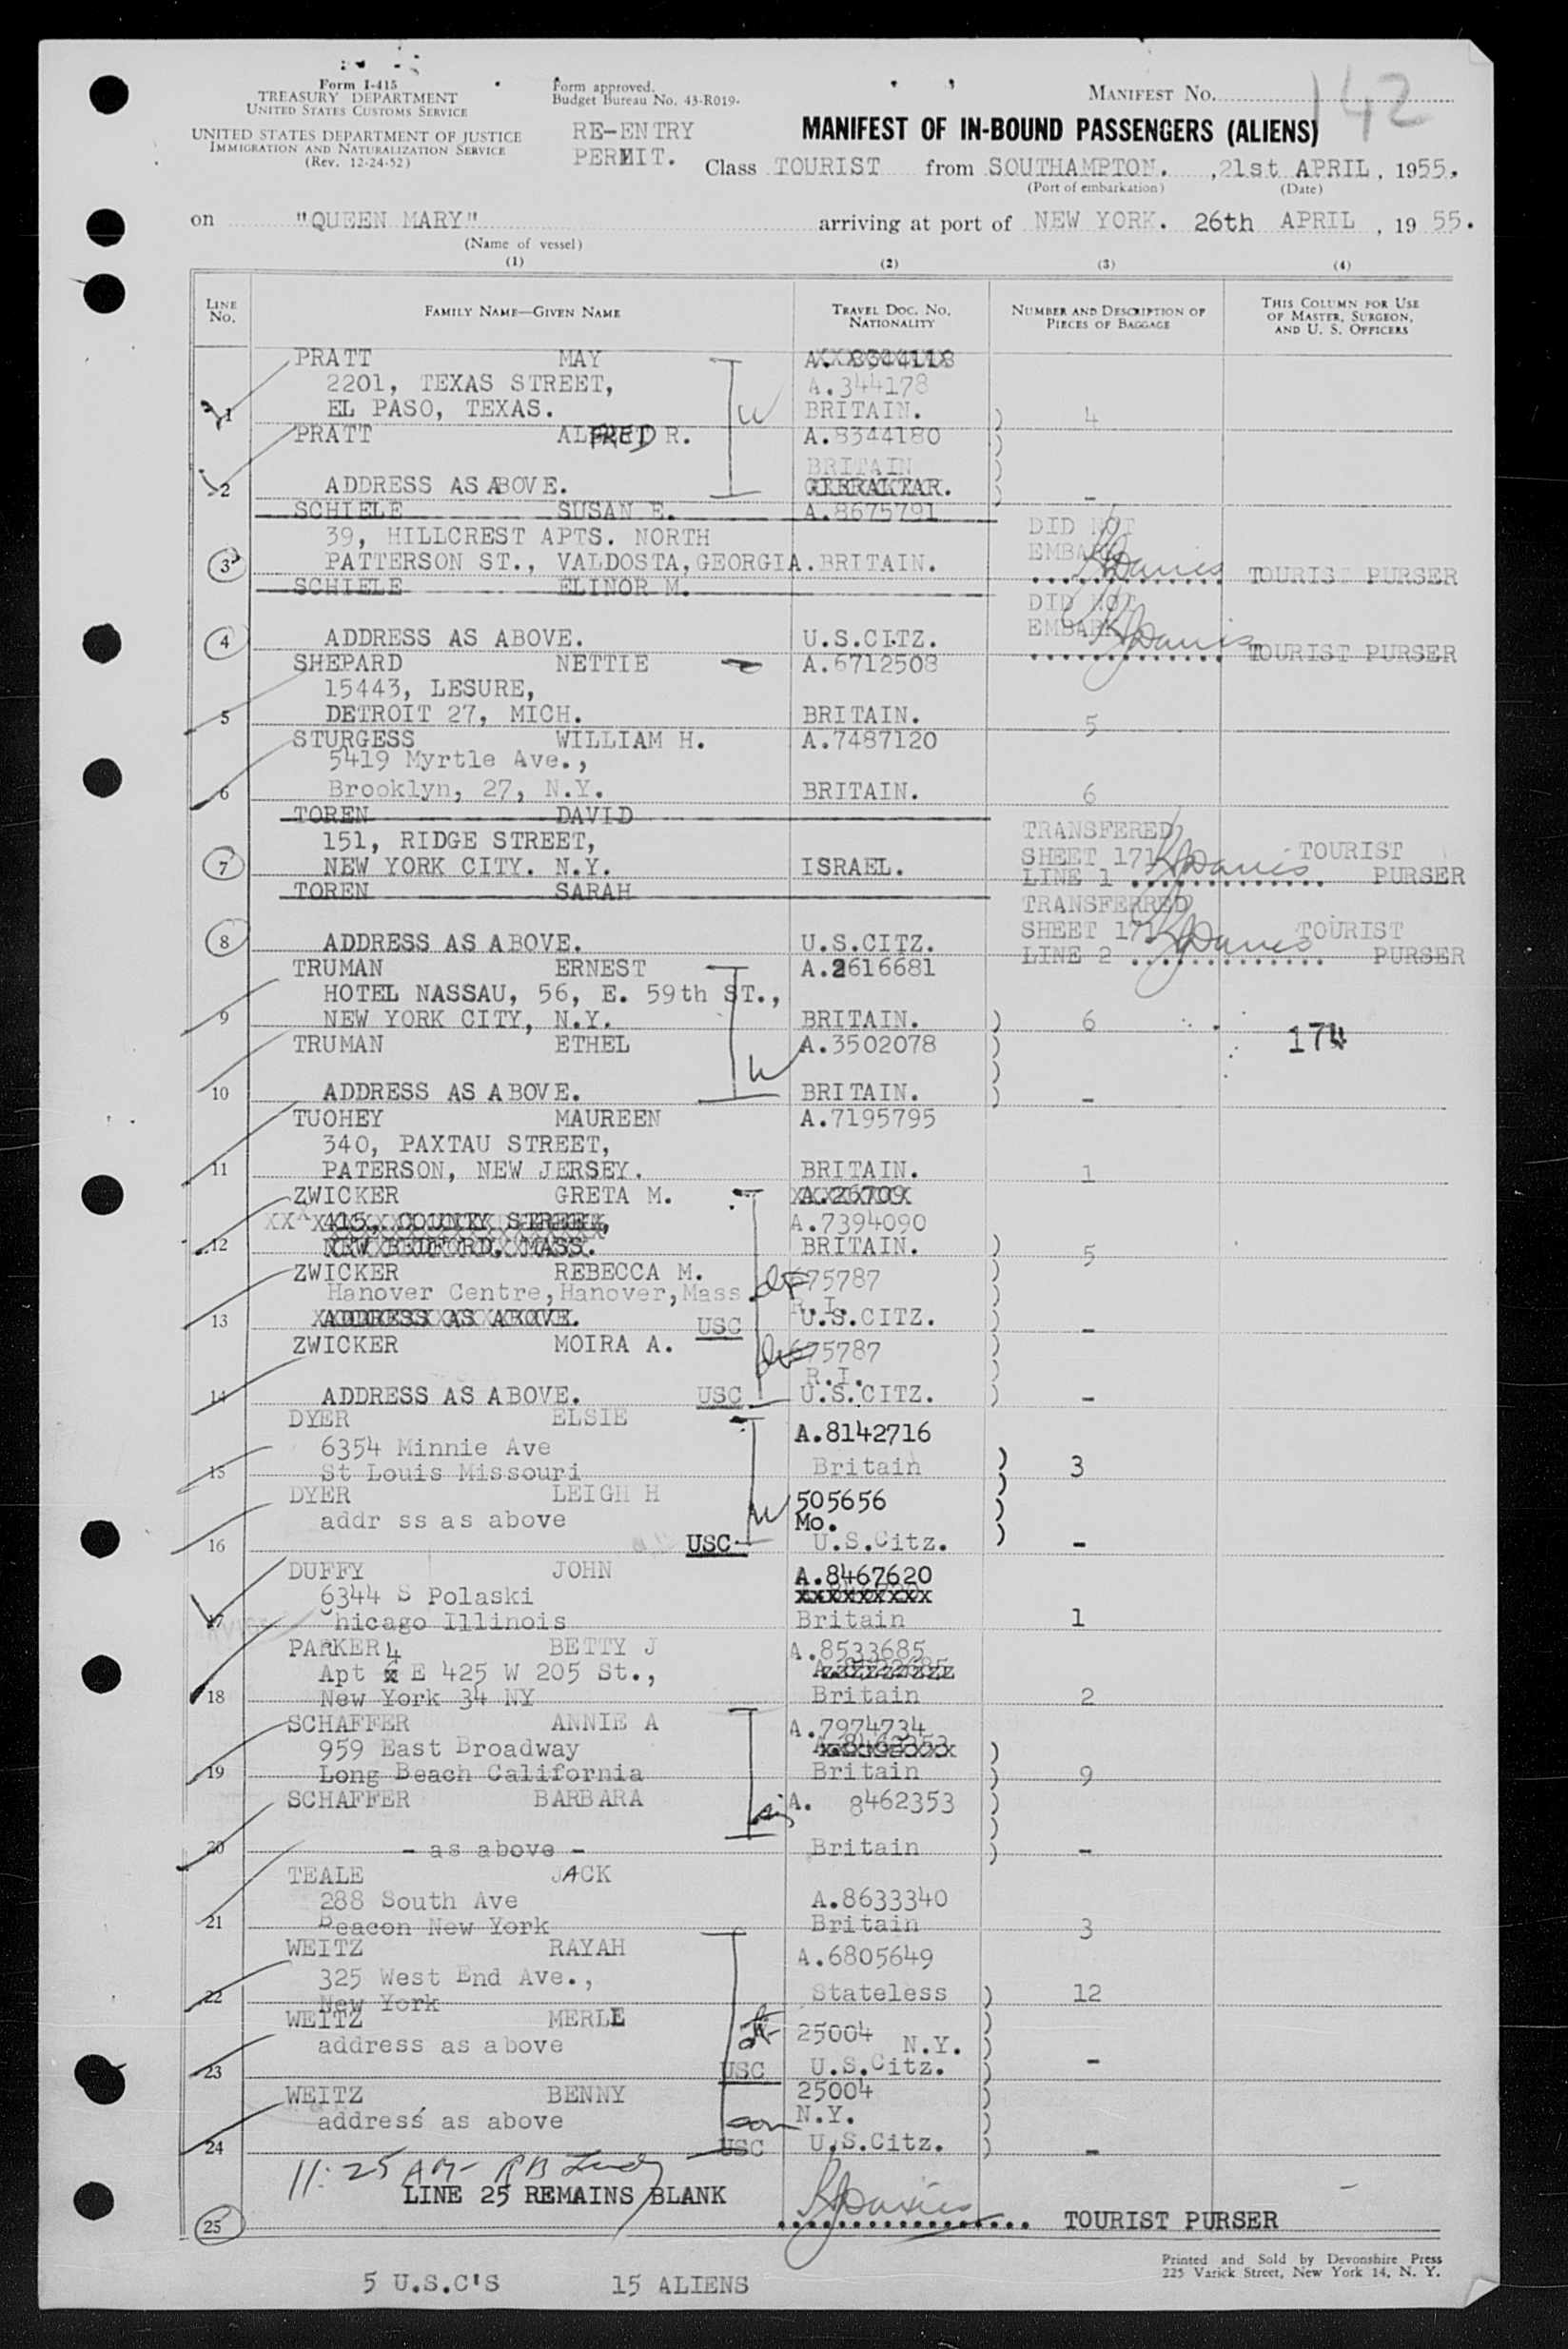 Form I-415
TREASURY DEPARTMENT
UNITED STATES CUSTOMS SERVICE
UNITED STATES DEPARTMENT OF JUSTICE
IMMIGRATION AND NATURALIZATION SERVICE
(Rev. 12-24-52)
Form approved.
Budget Bureau No. 43-R019-
RE-ENTRY
PERMIT.
MANIFEST No. 142
MANIFEST OF IN-BOUND PASSENGERS (ALIENS)
Class TOURIST from SOUTHAMPTON. ,21st APRIL, 1955.
(Port of embarkation) (Date)
on "QUEEN MARY" arriving at port of NEW YORK. 26th APRIL , 19 55.
(Name of vessel)
(1) (2) (3) (4)
LINE No. FAMILY NAME—GIVEN NAME TRAVEL DOC. NO. NATIONALITY NUMBER AND DESCRIPTION OF PIECES OF BAGGAGE THIS COLUMN FOR USE OF MASTER, SURGEON, AND U. S. OFFICERS
PRATT MAY A.8344118
2201, TEXAS STREET, A.344178
1 EL PASO, TEXAS. W BRITAIN. ) 4
PRATT ALFRED R. A.8344180 )
BRITAIN )
2 ADDRESS AS ABOVE. GIBRALTAR. ) -
SCHIELE SUSAN E. A.8675791
39, HILLCREST APTS. NORTH DID NOT
3 PATTERSON ST., VALDOSTA, GEORGIA. BRITAIN. EMBARK Davies TOURIST PURSER
SCHIELE ELINOR M. DID NOT
4 ADDRESS AS ABOVE. U.S.CITZ. EMBARK Davies TOURIST PURSER
SHEPARD NETTIE A.6712508
15443, LESURE,
5 DETROIT 27, MICH. BRITAIN. 5
STURGESS WILLIAM H. A.7487120
5419 Myrtle Ave.,
6 Brooklyn, 27, N.Y. BRITAIN. 6
TOREN DAVID TRANSFERED
151, RIDGE STREET, SHEET 171 TOURIST
7 NEW YORK CITY. N.Y. ISRAEL. LINE 1 Davies PURSER
TOREN SARAH TRANSFERRED
SHEET 171 TOURIST
8 ADDRESS AS ABOVE. U.S.CITZ. LINE 2 Davies PURSER
TRUMAN ERNEST A.2616681
HOTEL NASSAU, 56, E. 59th ST.,
9 NEW YORK CITY, N.Y. BRITAIN. ) 6 174
TRUMAN ETHEL A.3502078 )
W )
10 ADDRESS AS ABOVE. BRITAIN. ) -
TUOHEY MAUREEN A.7195795
340, PAXTAU STREET,
11 PATERSON, NEW JERSEY. BRITAIN. 1
ZWICKER GRETA M. A.26709
415, COUNTY STREET, A.7394090
12 NEW BEDFORD, MASS. BRITAIN. ) 5
ZWICKER REBECCA M. 675787 )
Hanover Centre, Hanover, Mass. R.I. )
13 ADDRESS AS ABOVE. USC U.S.CITZ. ) -
ZWICKER MOIRA A. 675787 )
R.I. )
14 ADDRESS AS ABOVE. USC U.S.CITZ. ) -
DYER ELSIE A.8142716
6354 Minnie Ave
15 St Louis Missouri Britain ) 3
DYER LEIGH H W 505656 )
addr ss as above Mo. )
16 USC U.S.Citz. ) -
DUFFY JOHN A.8467620
6344 S Polaski xxxxxxxxx
17 Chicago Illinois Britain 1
PARKER BETTY J A.8533685
Apt 4 E 425 W 205 St.,
18 New York 34 NY Britain 2
SCHAFFER ANNIE A A.7974734
959 East Broadway A.8462353 )
19 Long Beach California Britain ) 9
SCHAFFER BARBARA sis A. 8462353 )
20 - as above - Britain ) -
TEALE JACK
288 South Ave A.8633340
21 Beacon New York Britain 3
WEITZ RAYAH A.6805649
325 West End Ave.,
22 New York Stateless ) 12
WEITZ MERLE 25004 )
address as above N.Y. )
23 USC U.S.Citz. ) -
WEITZ BENNY 25004 )
address as above son N.Y. )
24 USC U.S.Citz. ) -
11:25 AM
LINE 25 REMAINS BLANK
25 Davies TOURIST PURSER
Printed and Sold by Devonshire Press
225 Varick Street, New York 14, N. Y.
5 U.S.C'S 15 ALIENS